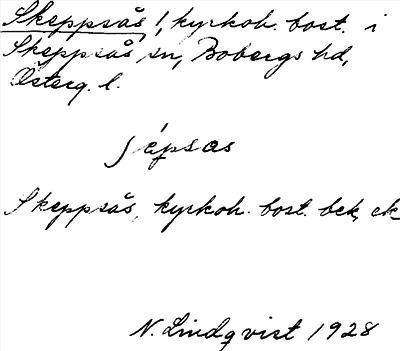 Skeppsås !, kyrkoh. bost. i
Skeppsås sn, Bobergs hd,
Österg. l.
Skeppsås, kyrkoh. bost. bek, ek
N. Lindqvist 1928